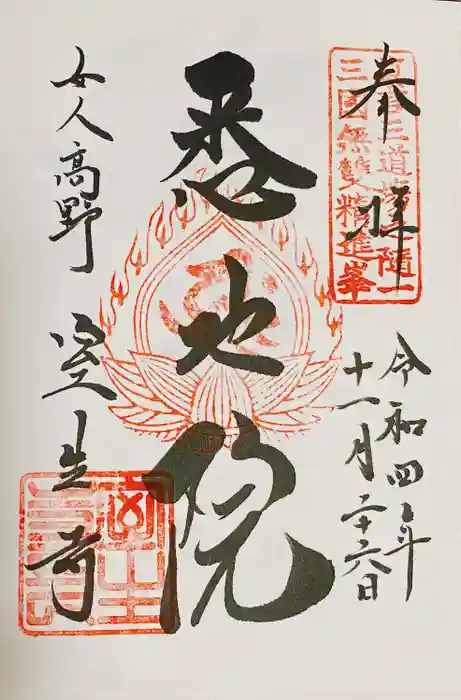 奉拝
真言三道場之隨一
三國無雙精進峯
令和四年
十一月二十六日
悉地院
女人高野
室生寺